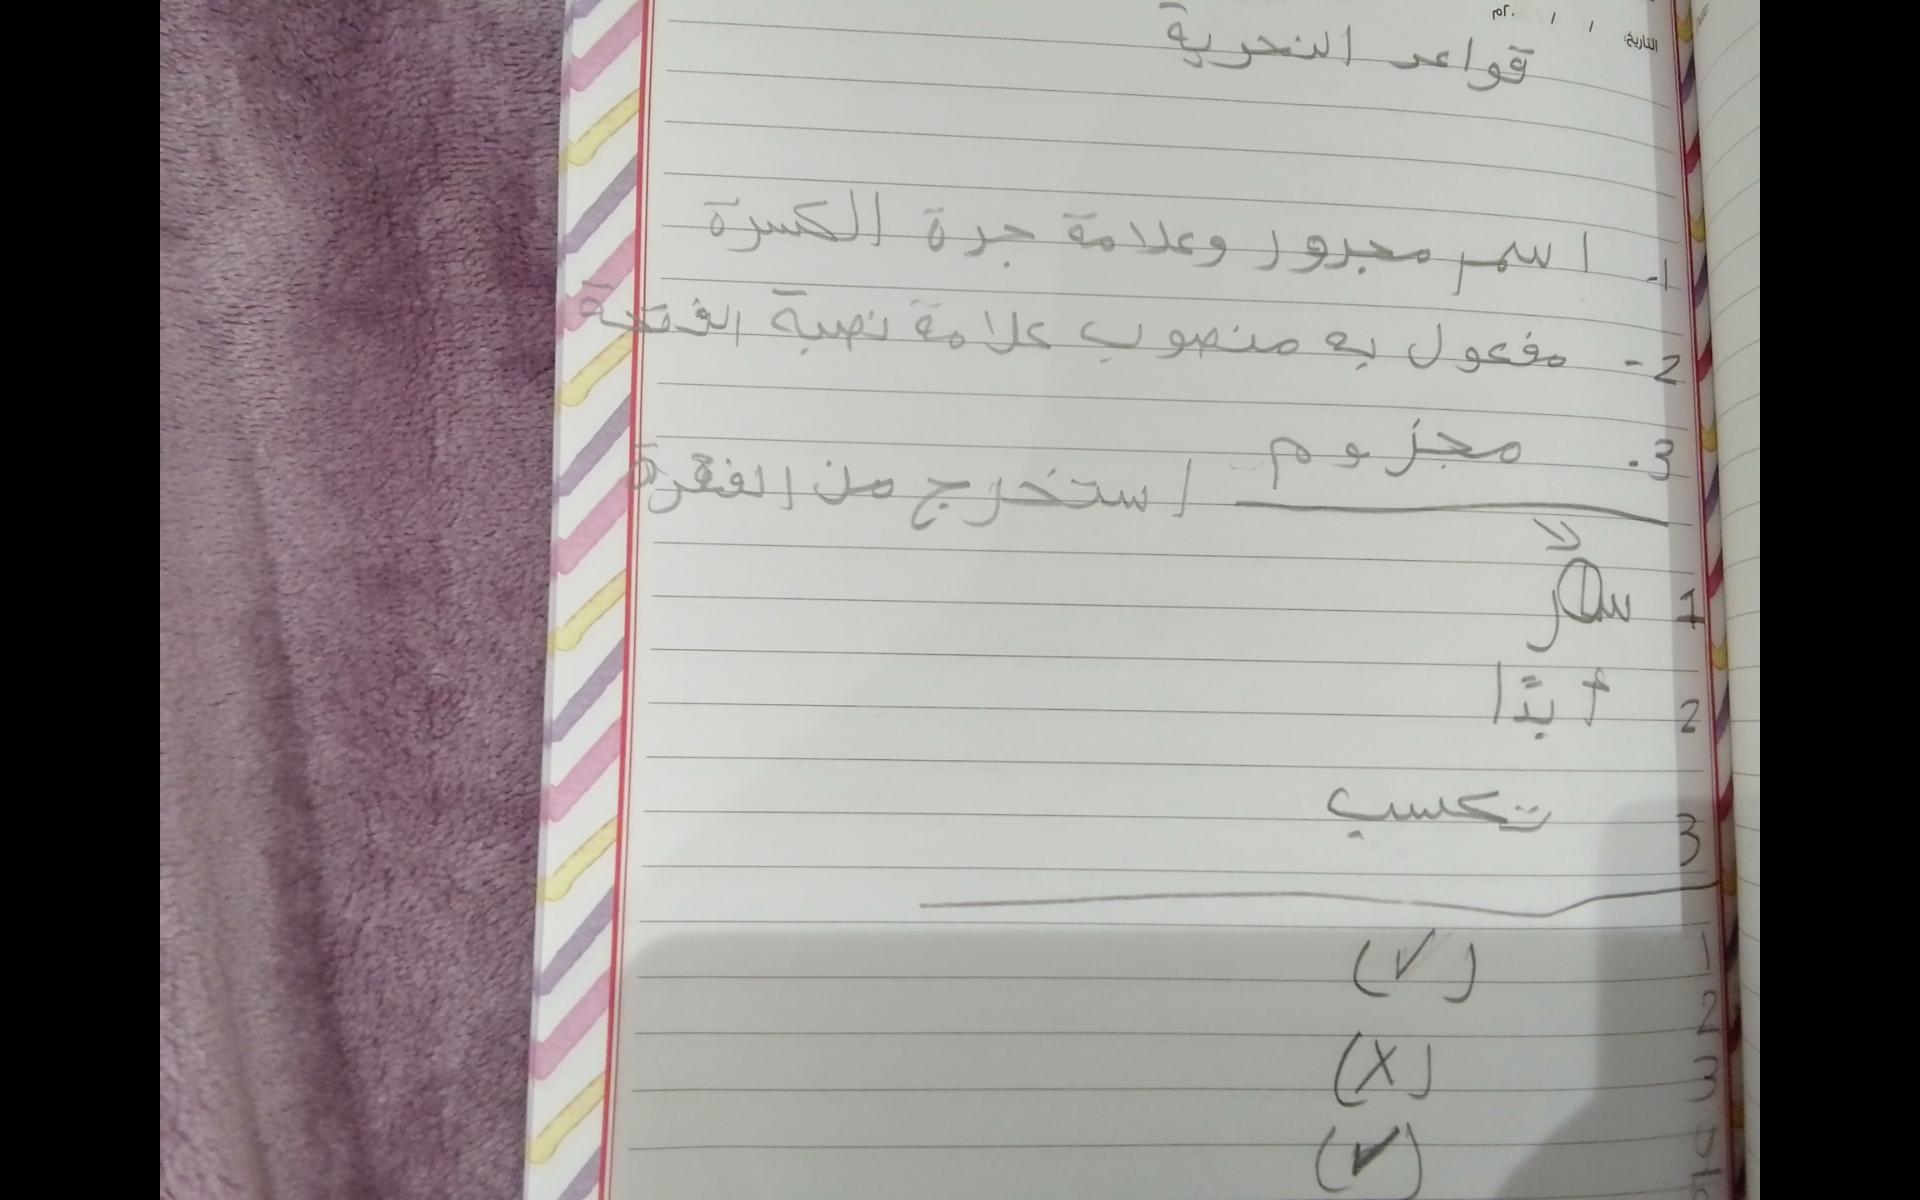 التاريخ: / / ٢٠م
قواعد النحرية
1- اسم مجرور وعلامة جرة الكسرة
2- مفعول به منصوب علامة نصبة الفتحة
3- مجزوم
استخرج من الفقرة
1 سار
2 أبدًا
3 تكسب
1 (✓)
2
3 (X)
(✓)